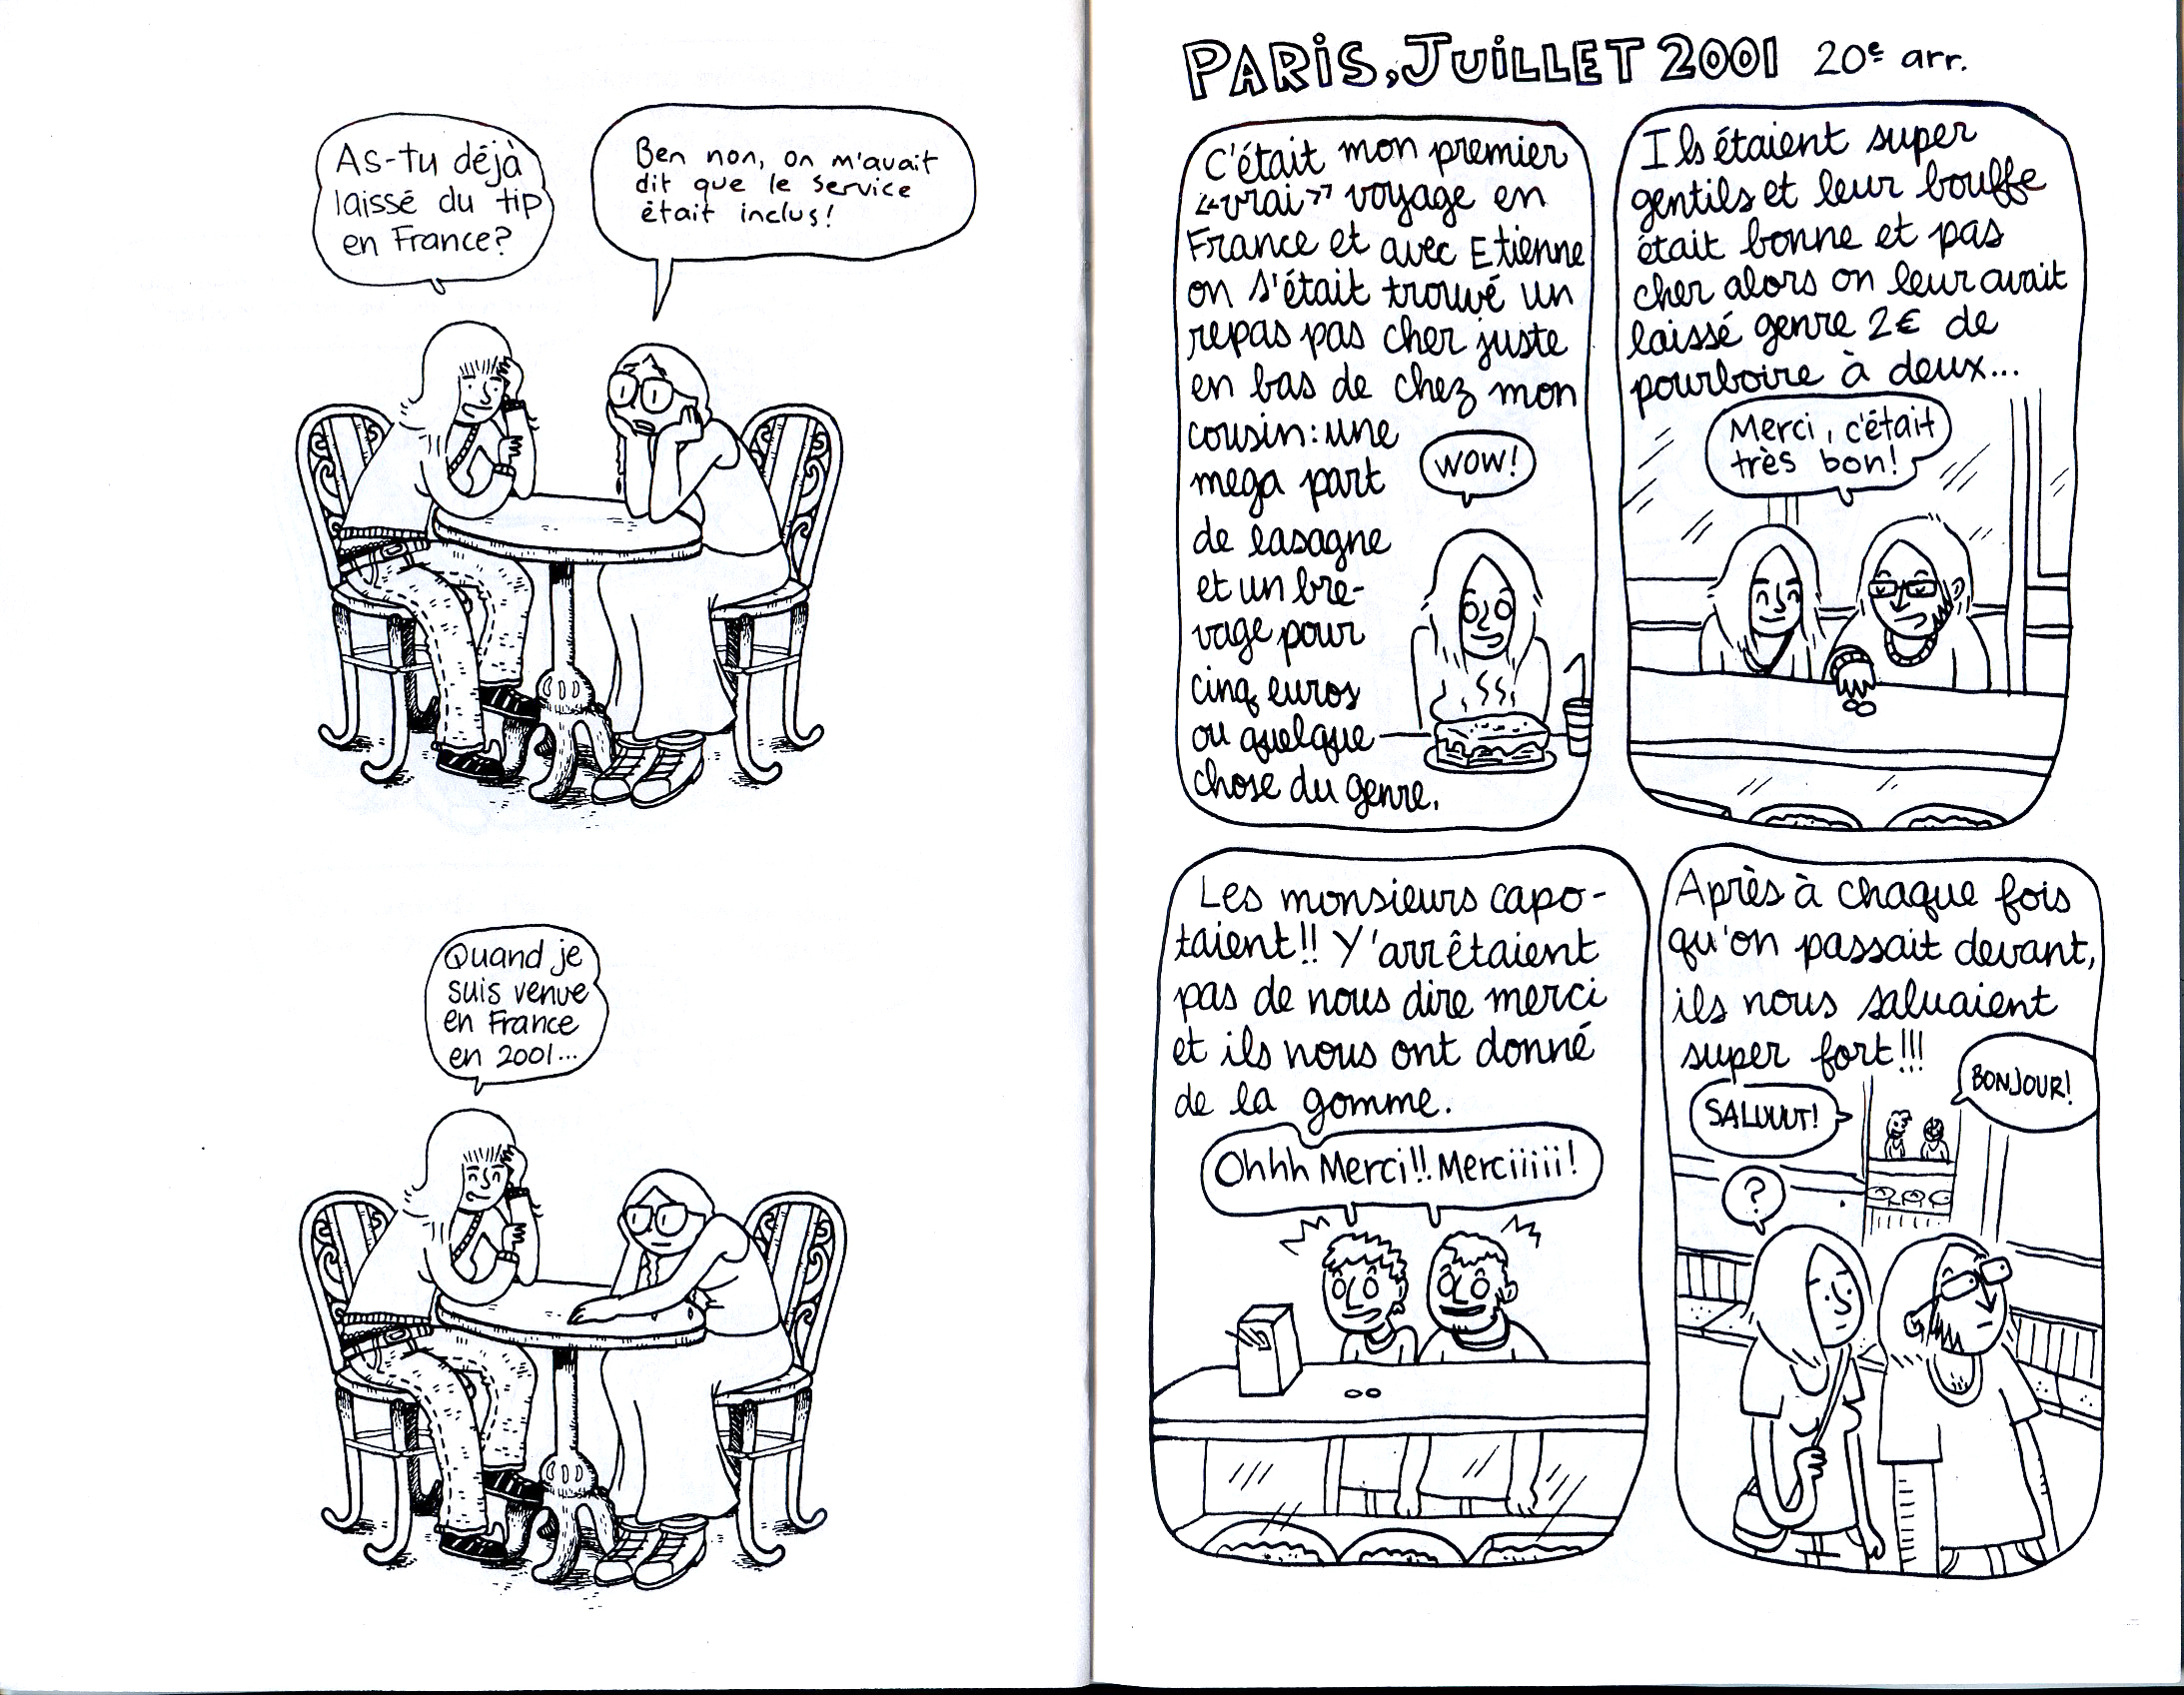 As-tu déjà
laissé du tip
en France?
Ben non, on m'avait
dit que le service
était inclus!
Quand je
suis venue
en France
en 2001...
PARIS, JUILLET 2001 20e arr.
C'était mon premier
"vrai" voyage en
France et avec Etienne
on s'était trouvé un
repas pas cher juste
en bas de chez mon
cousin: une
mega part
de lasagne
et un bre-
vage pour
cinq euros
ou quelque
chose du genre.
WOW!
Ils étaient super
gentils et leur bouffe
était bonne et pas
cher alors on leur avait
laissé genre 2€ de
pourboire à deux...
Merci, c'était
très bon!
Les monsieurs capo-
taient!! Y'arrêtaient
pas de nous dire merci
et ils nous ont donné
de la gomme.
Ohhh Merci!! Merciiiii!
Après à chaque fois
qu'on passait devant,
ils nous saluaient
super fort!!!
BONJOUR!
SALUUUT!
?